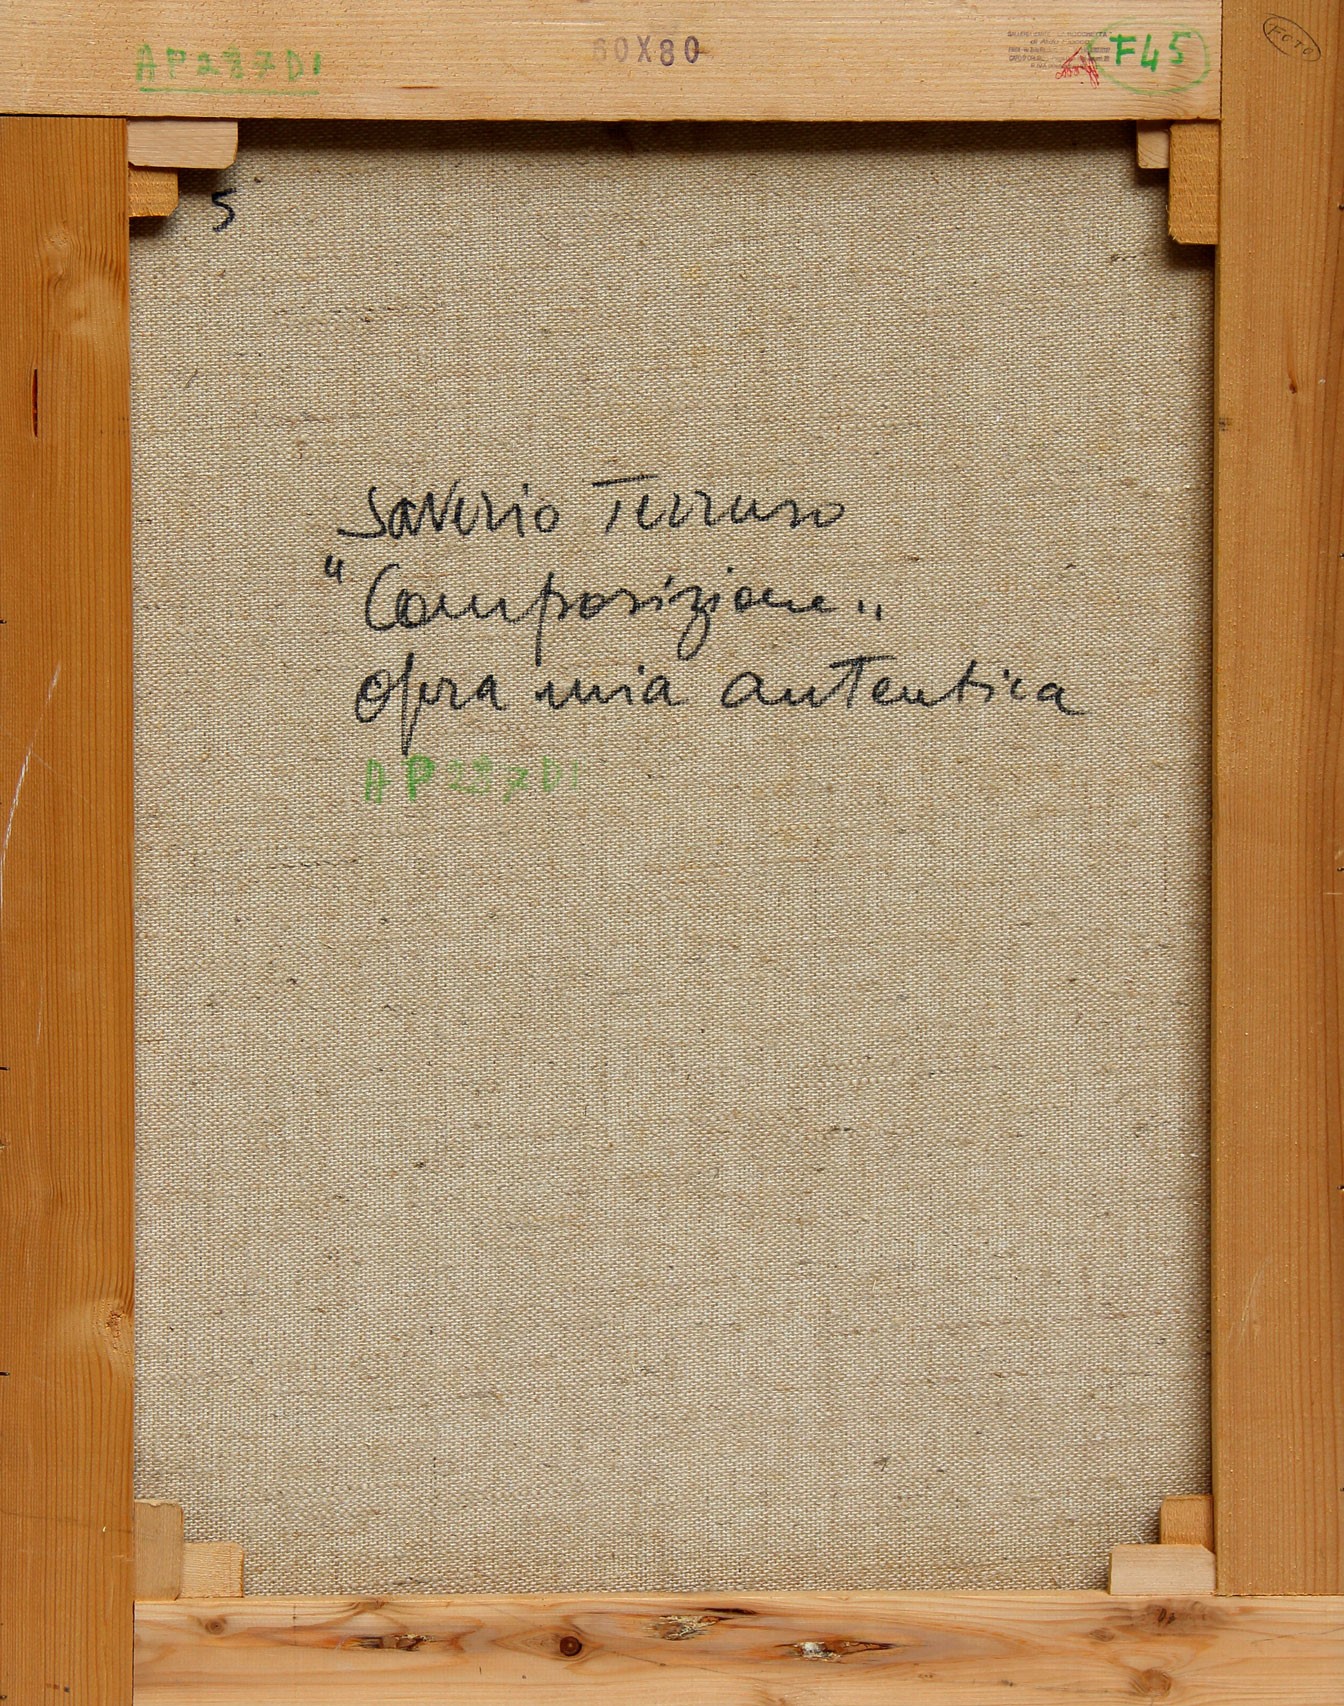 AP287DI
60X80
F45
FOTO
5
Saverio Terruso
"Composizione"
opera mia autentica
AP287DI